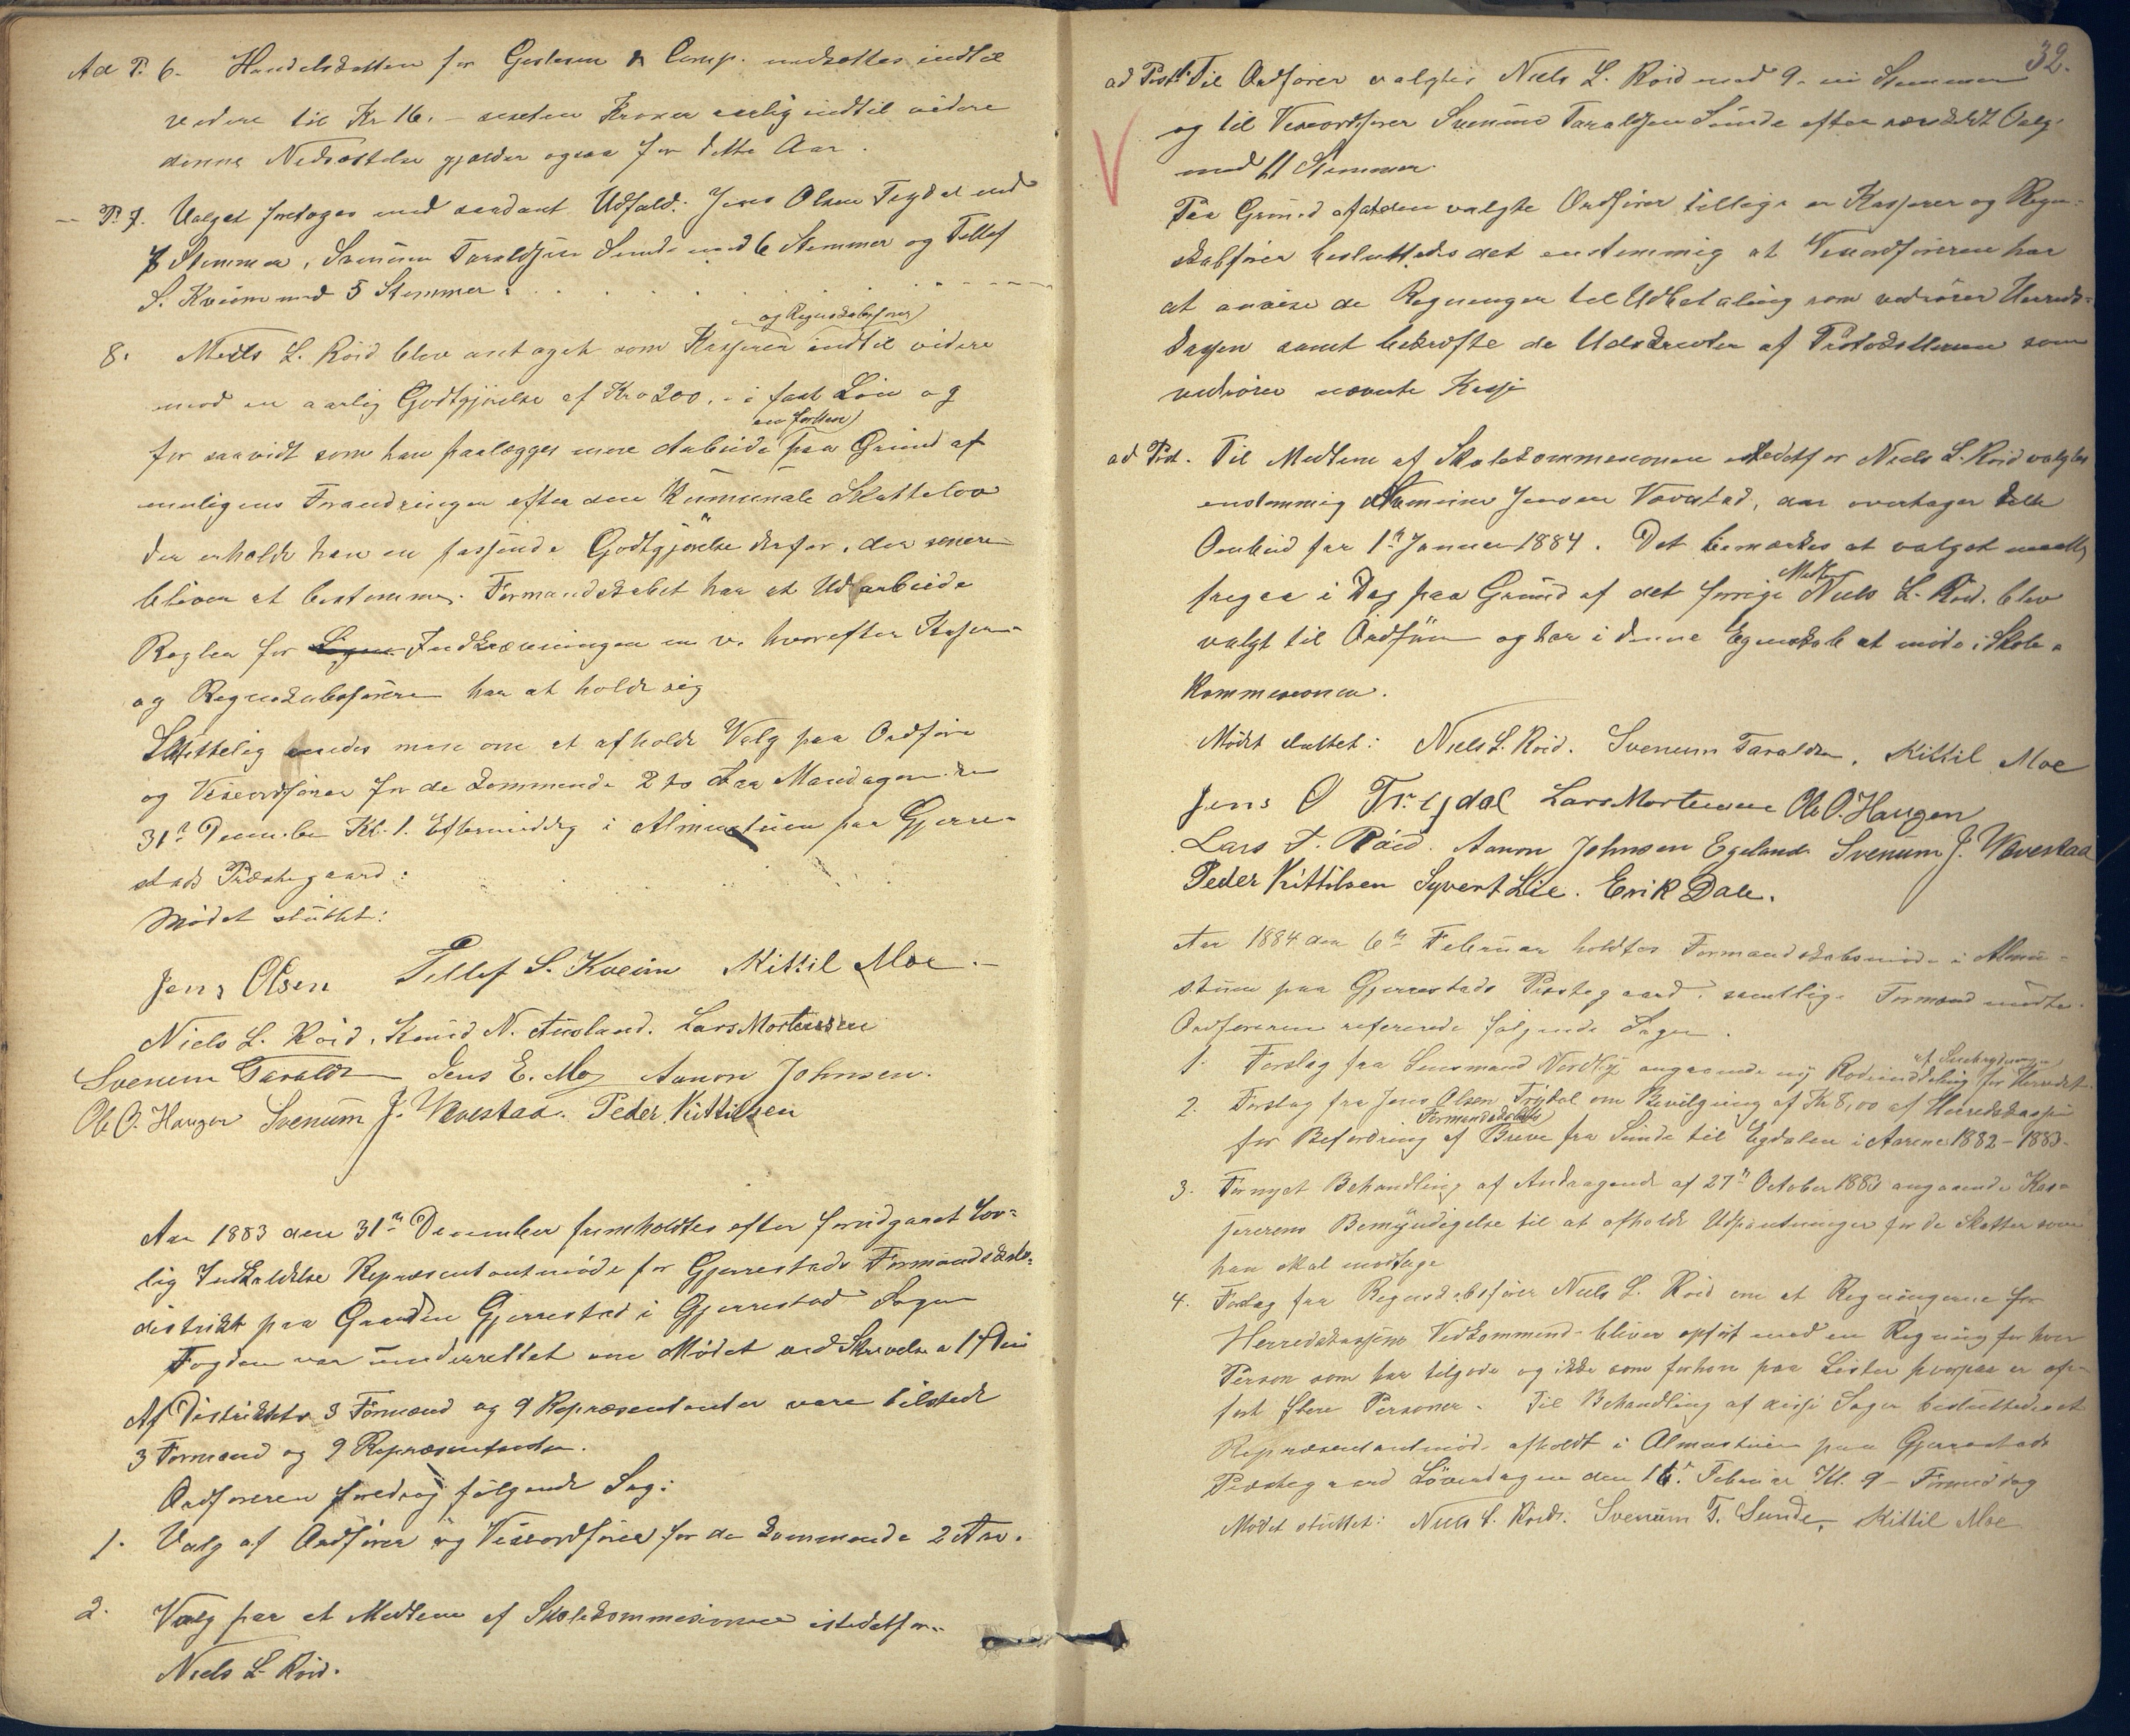 Ad P. 6. Handelsskatten for Geslesen & Comp. nedsattes indtil
videre til Kr 16. – sexten Kroner aarlig indtil videre
denne Nedsættelse gjælder ogsaa for dette Aar.
— P. 7. Valget foretoges med saadant Udfald: Jens Olsen Trydal med
7 Stemmer, Svenum Taraldsen Sunde med 6 Stemmer og Tellef
S. Kveim med 5 Stemmer.
og Regnskabsfører
8. Niels L. Röid blev antaget som Kasserer indtil videre
mod en aarlig Godtgjörelse af Kr 200, - i fast Lön og
for saavidt som han paalægges mere Arbeide paa Grund af
muligens Forandringer efter den Kumunale Skattelov
der erholde han en passende Godtgjörelse derfor, der senere
bliver at bestemme. Formandskabet har at Udarbeide
Regler for Inddrivningen m v. hvorefter Kasserer
og Regnskabsföreren har at holde sig
Sluttelig enedes man om at afholde Valg paa Ordförer
og Viseordförer for de kommende 2 to Aar Mandagen den
31te December Kl. 1. Eftermiddag i Almustuen paa Gjerre-
stads Præstegaard.
Mödet sluttet:
Jens Olsen Tellef S. Kveim Kittil Moe.
Niels L. Röid. Knud N. Ausland. Lars Mortensen
Svenum Taralds Jens E. Moe Aanon Johnsen.
Ole O. Haugen Svenum J. Vævestad. Peder Kittilsen
Aar 1883 den 31te December fremholdtes efter forudgaaet Lov-
lig Indkaldelse Repræsentantmöde for Gjerrestads Formandskabs-
distrikt paa Gaarden Gjerrestad i Gjerrestad Sogn
Fogden var underrettet om Mödet ved Skrivelse a 17 ds
Af Distriktets 3 Formænd og 9 Repræsentanter vare tilstede
3 Formænd og 9 Repræsentanter.
Ordföreren foredrog fölgende Sag:
1. Valg af Ordförer og Viseordförer for de kommende 2 Aar.
2. Valg paa et Medlem af Skolekommesionen istedetfor
Niels L. Röid.
32.
ad Post 1. Til Ordförer valgtes Niels L. Röid med 9 - ni Stemmer
og til Viseordförer Svenum Taraldsen Sunde efter særskildt Valg
med 11 Stemmer.
Paa Grund af at den valgte Ordförer tillige er Kasserer og Regn-
skabsförer besluttedes det enstemmig at Viseordföreren har
at anvise de Regninger til Udbetaling som vedrörer Herreds-
kassen samt bekræfte de Udskrevter af Protokollerne som
vedrörer nævnte Kasse
ad Post. Til Medlem af Skolekommesionen istedetfor Niels L. Röid valgtes
enstemmig Svenum Jensen Vævestad, der overtager dette
Ombud fra 1ste Januar 1884. Det bemærkes at valget maatte
Medlem
foregaa i Dag paa Grund af det forrige Niels L. Röid. blev
valgt til Ordförer og har i denne Egenskab at möde i Skole-
kommesionen.
Mödet sluttet: Niels L. Röid. Svenum Taraldsen, Kittil Moe
Jens O Trydal Lars Mortensen Ole O. Haugen
Lars T. Röid. Aanon Johnsen Egeland Svenum J. Vævestad
Peder Kittilsen Syvert Lie. Erik Dale.
Aar 1884 den 6te Februar holdtes Formandskabsmöde i Almu-
stuen paa Gjerrestads Præstegaard. samtlige Formænd mödte.
Ordföreren refererede fölgende Sager.
1. Forslag fra Lensmand angaaende ny Rodeinddeling for Herredet
2. Forslag fra Jens Olsen Trydal om Bevilgning af Kr 8,00 af Herredskassen
Formandskabets
for Befordring af Breve fra Sunde til Egdalen i Aarene 1882 – 1883.
3. Fornyet Behandling af Andragende af 27de October 1883 angaaende Kas-
sererens Bemyndigelse til at afholde Udpantninger for de Skatter som
han skal modtage
4. Forslag fra Regnskabsförer Niels L. Röid om at Regningerne for
Herredskassens Vedkommende bliver opfört med en Regning for hver
Person som har tilgode og ikke som forhen paa Lister hvorpaa er op-
fört flere Personer. Til Behandling af disse Sager besluttedes et
Repræsentantmöde afholdt i Almustuen paa Gjerrestads
Præstegaard Löverdagen den 16de Februar Kl. 9 - Formiddag
Mödet sluttet: Niels L. Röid. Svenum T. Sunde, Kittil Moe